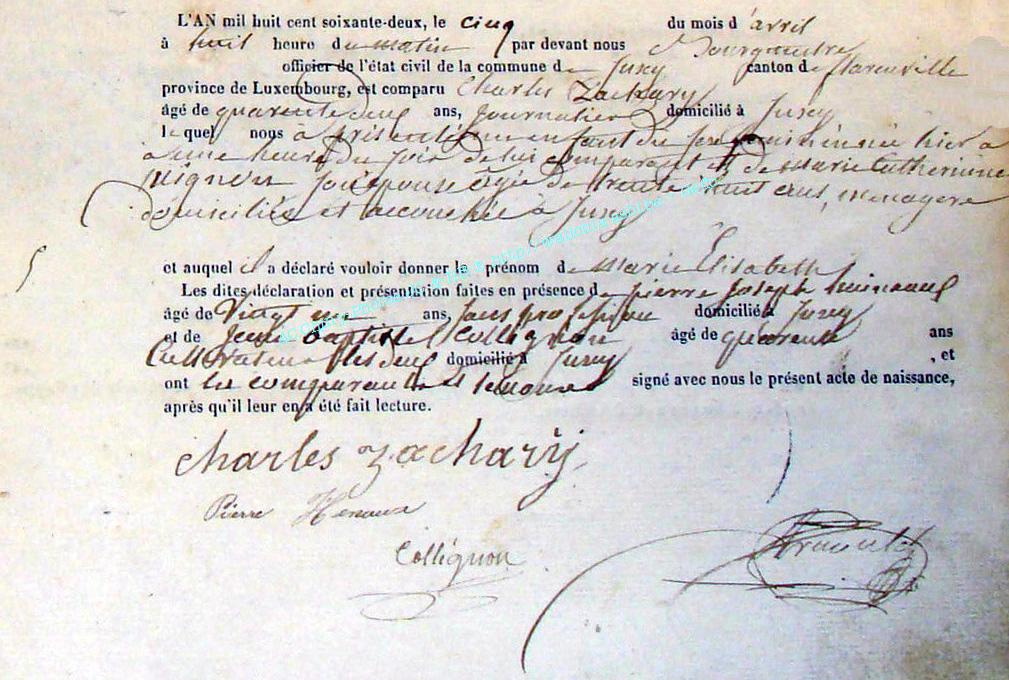 L'AN mil huit cent soixante-deux, le cinq du mois d'avril
à huit heure du matin par devant nous Bourgmestre
officier de l'état civil de la commune de Juscy canton de
province de Luxembourg, est comparu Charles Zachary
âgé de quarente deux ans, Journalier domicilié à Juscy
le quel nous a présenté un enfant du sexe né hier à
à une heure du soir de lui comparant et de Marie Catherinne
son épouse âgée de trente huit ans, menagere
domiciliée et accouchée à Juscy
et auquel il a déclaré vouloir donner le prénom de Marie Elisabeth
Les dites déclaration et présentation faites en présence de pierre Joseph
âgé de Vingt ans, sans profession domicilié à Juscy
et de Jean baptiste Collignon âgé de quarente ans
Cultivateur les deux domicilié à Juscy , et
ont les comparant et temoins signé avec nous le présent acte de naissance,
après qu'il leur en a été fait lecture.
charles zachary
Pierre Henaux
Collignon